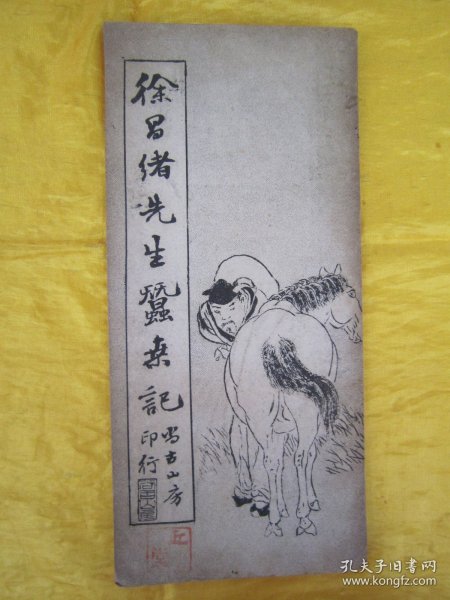 徐昌绪先生蠶桑記
尚古山房
印行
孔夫子旧书网
www.kongfz.com